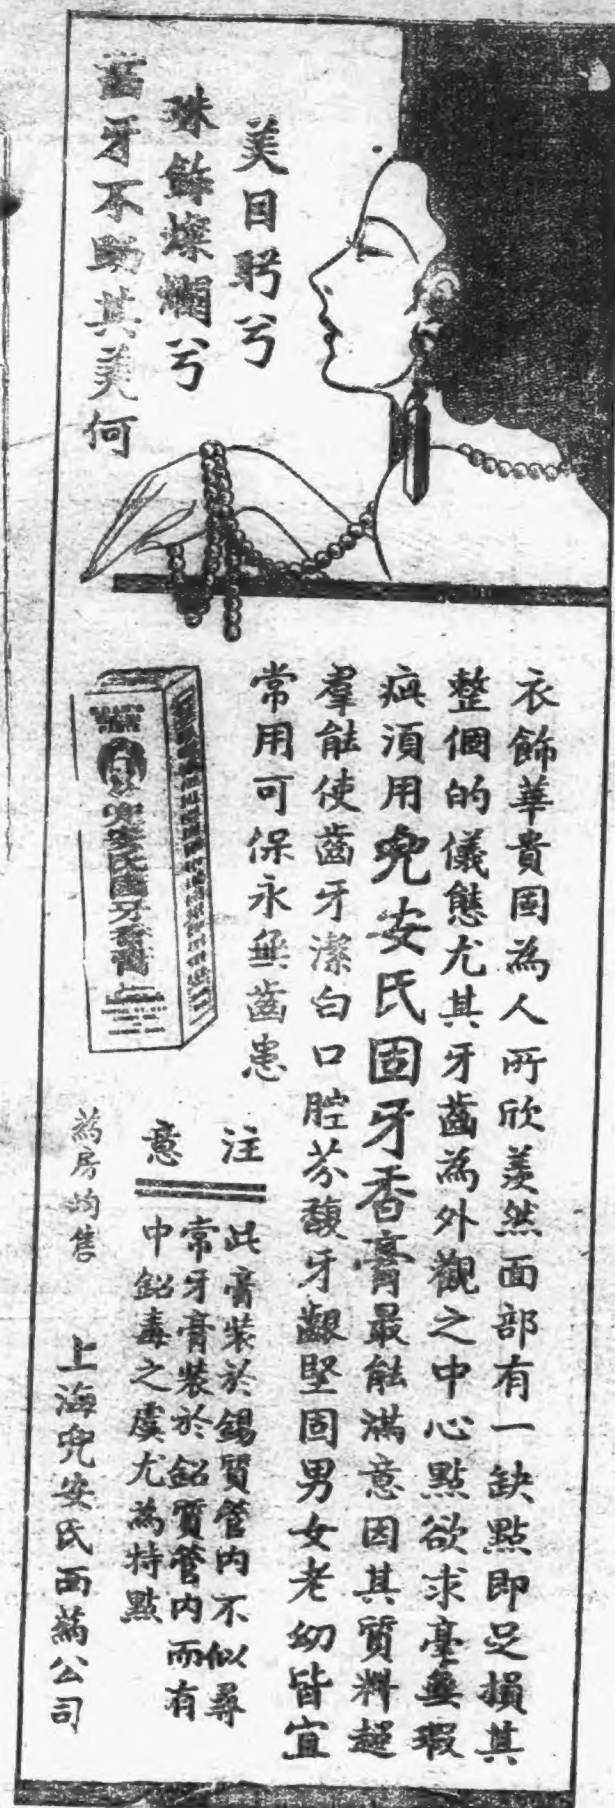 美目盻兮
珠飾燦爛兮
齒牙不勵其美何
衣飾華貴固為人所欣羨然面部有一缺點即足損其
整個的儀態尤其牙齒為外觀之中心點欲求毫無瑕
疵須用兜安氏固牙香膏最能滿意因其質料超
羣能使齒牙潔白口腔芬馥牙齦堅固男女老幼皆宜
常用可保永無齒患
兜安氏固牙香膏
注意
此膏裝於錫質管内不似尋
常牙膏裝於鉛質管内而有
中鉛毒之虞尤為特點
藥房均售
上海兜安氏西藥公司